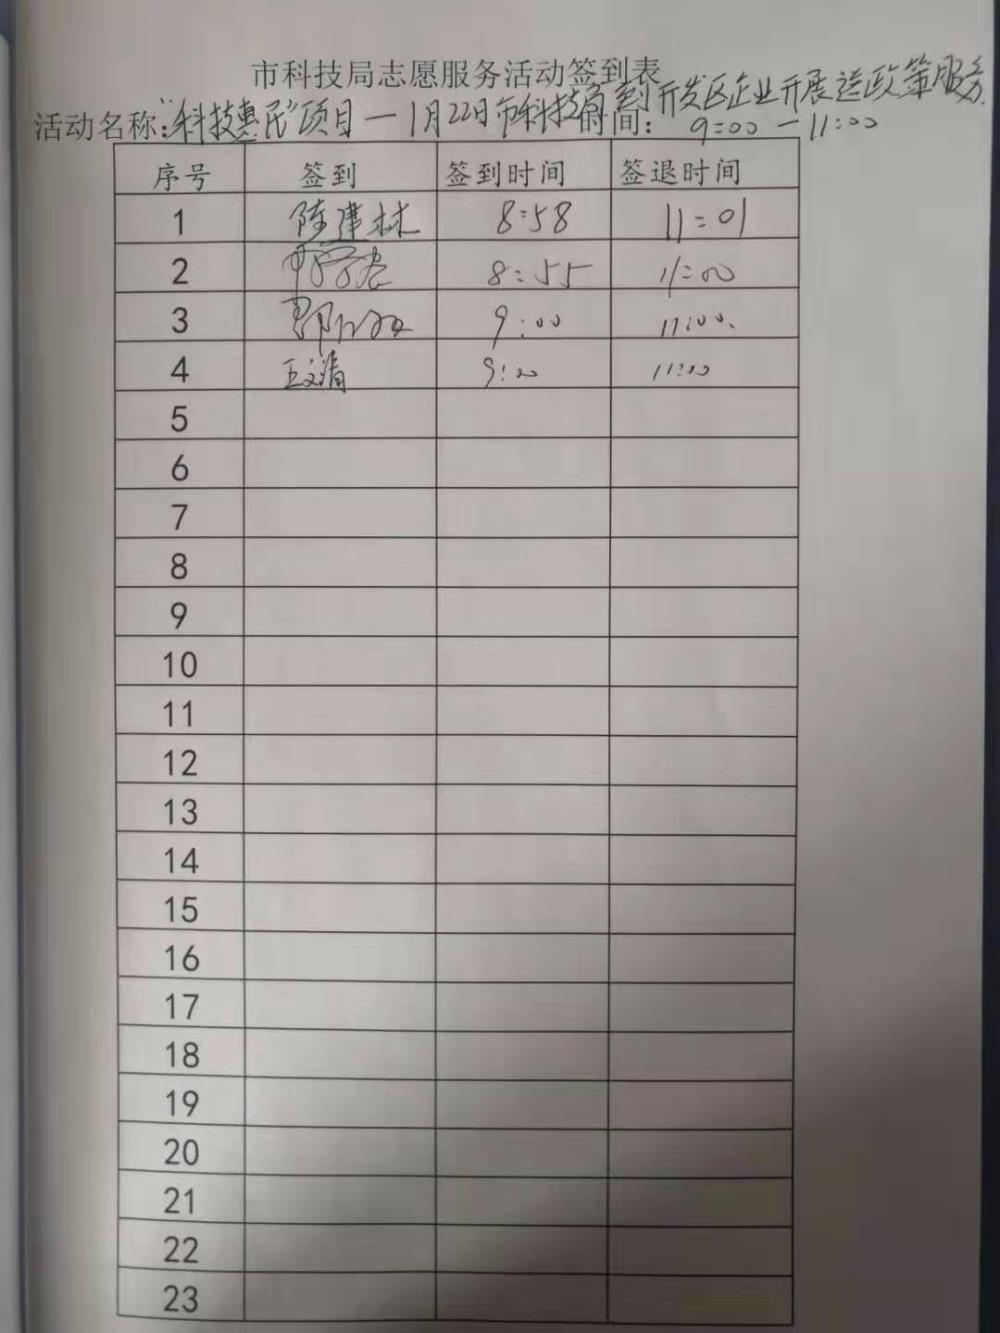 市科技局志愿服务活动签到表
活动名称:“科技惠民”项目—1月22日市科技局到开发区企业开展送政策服务
时间: 9:00—11:00
序号 签到 签到时间 签退时间
1 陈建林 8:58 11:01
2 8:55 11:00
3 9:00 11:00.
4 王文清 9:00 11:00
5
6
7
8
9
10
11
12
13
14
15
16
17
18
19
20
21
22
23